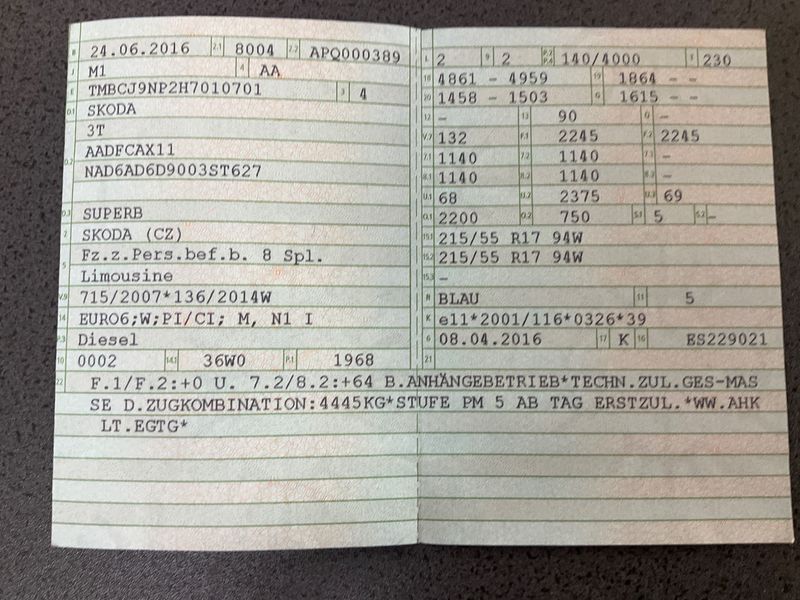 B 24.06.2016 2.1 8004 2.2 APQ000389
J M1 4 AA
E TMBCJ9NP2H7010701 3 4
D.1 SKODA
3T
D.2 AADFCAX11
NAD6AD6D9003ST627
D.3 SUPERB
2 SKODA (CZ)
5 Fz.z.Pers.bef.b. 8 Spl.
Limousine
V.9 715/2007*136/2014W
14 EURO6;W;PI/CI; M, N1 I
P.3 Diesel
10 0002 14.1 36W0 P.1 1968
L 2 9 2 P.2 P.4 140/4000 T 230
18 4861 - 4959 19 1864 - -
20 1458 - 1503 G 1615 - -
12 - 13 90 Q -
V.7 132 F.1 2245 F.2 2245
7.1 1140 7.2 1140 7.3 -
8.1 1140 8.2 1140 8.3 -
U.1 68 U.2 2375 U.3 69
O.1 2200 O.2 750 S.1 5 S.2 -
15.1 215/55 R17 94W
15.2 215/55 R17 94W
15.3 -
R BLAU 11 5
K e11*2001/116*0326*39
6 08.04.2016 17 K 16 ES229021
21
22 F.1/F.2:+0 U. 7.2/8.2:+64 B.ANHÄNGEBETRIEB*TECHN.ZUL.GES-MAS
SE D.ZUGKOMBINATION:4445KG*STUFE PM 5 AB TAG ERSTZUL.*WW.AHK
LT.EGTG*